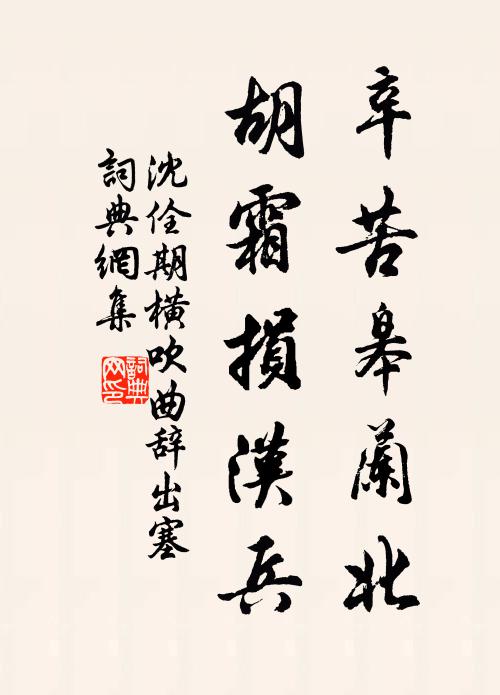 辛苦皋蘭北
胡霜損漢兵
沈佺期橫吹曲辞出塞
詞典網集
詞典网印